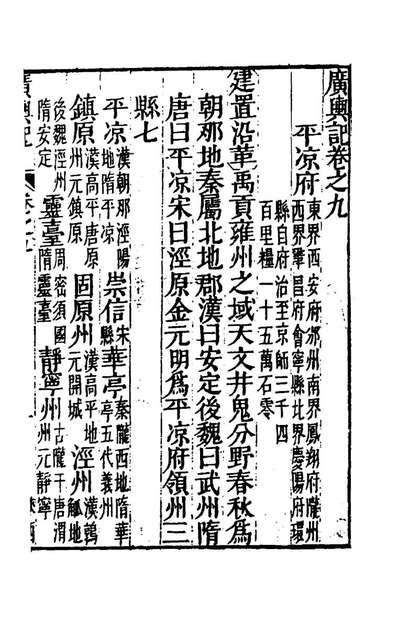 廣輿記卷之九
平凉府
東界西安府邠州南界鳳翔府隴州
西界鞏昌府會寧縣北界慶陽府環
縣自府治至京師三千四
百里糧一十五萬石零
建置沿革禹貢雍州之域天文井鬼分野春秋爲
朝那地秦屬北地郡漢曰安定後魏曰武州隋
唐曰平凉宋曰涇原金元明爲平凉府領州三
縣七
平凉 漢朝那涇陽地隋平凉 崇信 宋縣 華亭 秦隴西地隋華亭五代義州
鎮原 漢高平唐原州元鎮原 固原州 漢高平地元開城 涇州 漢鶉觚地
後魏涇州隋安定 靈臺 周密須國隋靈臺 靜寧州 古隴干唐渭州元靜寧
廣輿記